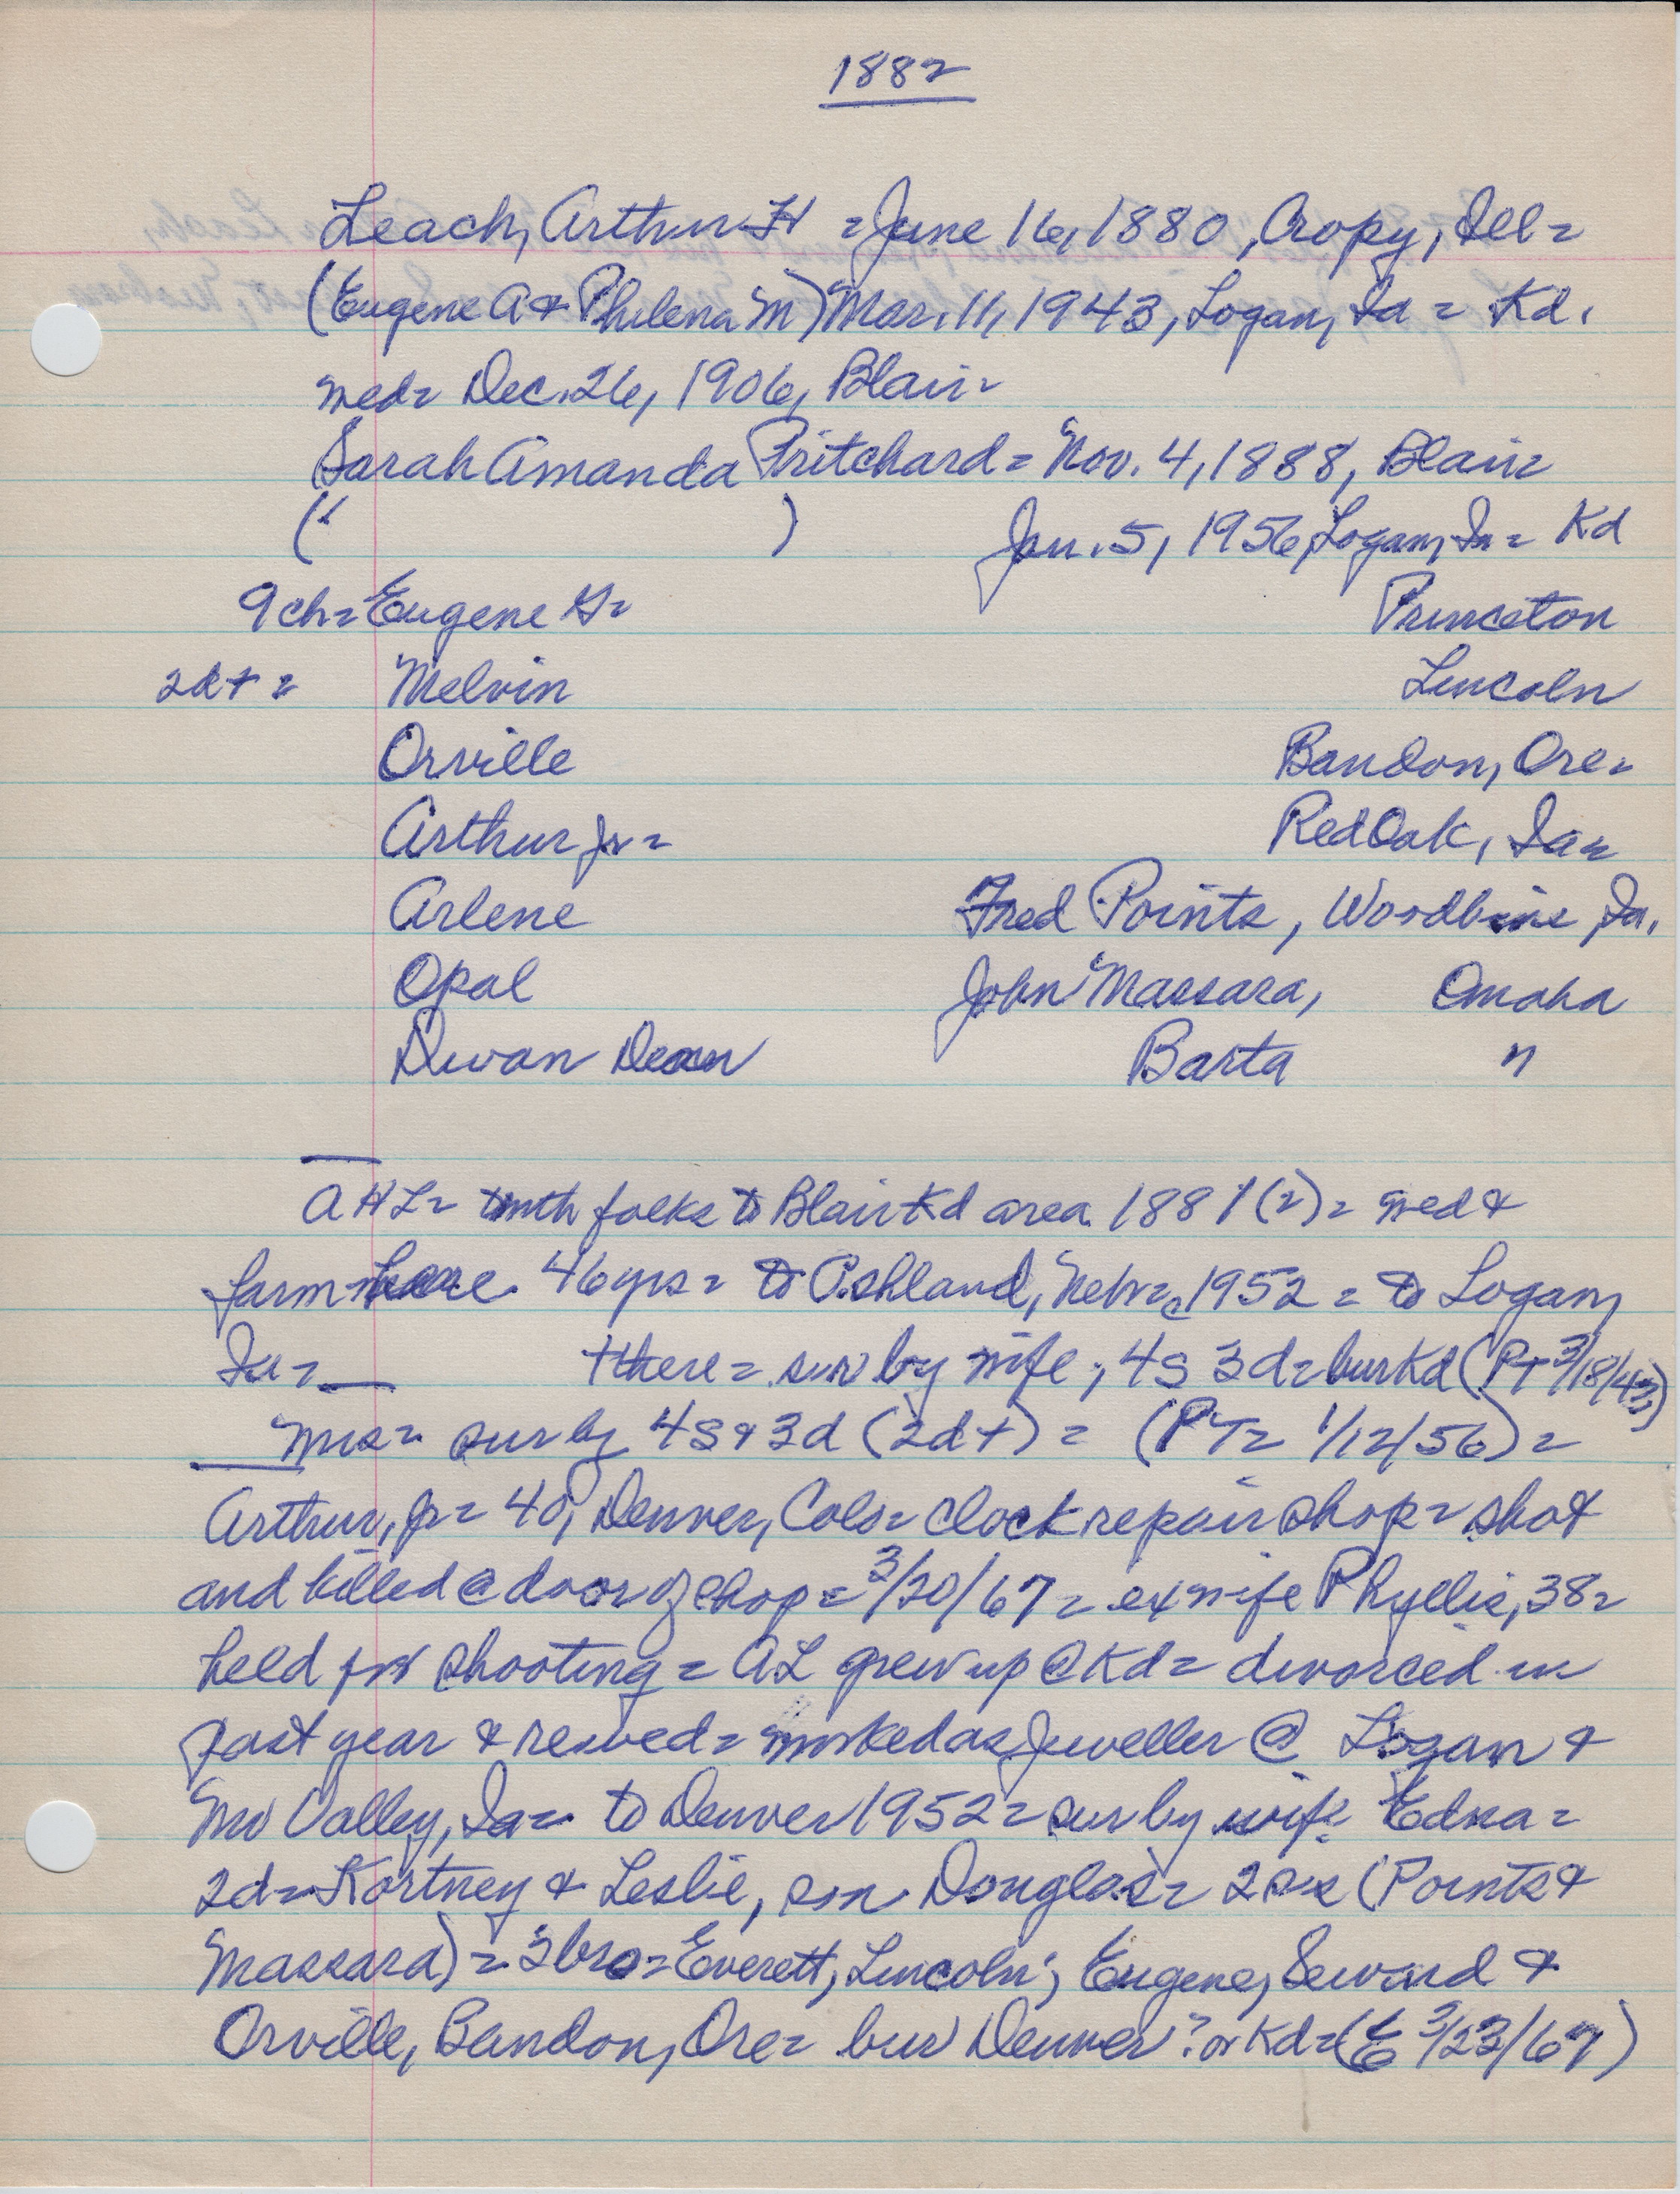 1882
Leach, Arthur H = June 16, 1880, Cropy, Ill =
(Eugene A & Philena M) Mar. 11, 1943, Logan, Ia = Kd.
med = Dec. 26, 1906, Blair =
Sarah Amanda Pritchard = Nov. 4, 1888, Blair =
( ) Jan. 5, 1956, Logan, Ia = Kd
9 ch = Eugene = Princeton
2d+ = Melvin Lincoln
Orville Bandon, Ore =
Arthur Jr = Red Oak, Ia =
Arlene Fred Points, Woodbine, Ia.
Opal John Massara, Omaha
Dean Barta "
AHL = folks to Blair Kd area 1881(2) = med &
farm 46 yrs = to Ashland, Nebr = 1952 = to Logan,
Ia = + there = sur by wife, 4s 3d = bur Kd (PT 3/18/43)
Mrs = sur by 4s & 3d (2d+) = (PT = 1/12/56) =
Arthur, Jr = 40, Denver, Colo = clock repair shop = shot
and killed @ door of shop = 3/20/67 = ex wife Phyllis, 38 =
held for shooting = AL grew up @ Kd = divorced in
past year & rewed = worked as Jeweller @ Logan &
Mo Valley, Ia = to Denver 1952 = sur by wife Edna =
2d = Kortney & Leslie, son Douglas = 2 sis (Points &
Massara) = 3 bro = Everett, Lincoln; Eugene, Seward &
Orville, Bandon, Ore = bur Denver? or Kd = (E 3/23/67)